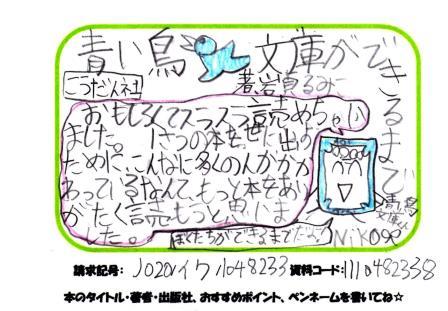 青い鳥文庫ができるまで
著、岩貞るみこ
こうだん社
おもしろくてスラスラ読めちゃい
ました。1さつの本を世に出す
ために、こんなに多くの人がかか
わっているなんて、もっと本をあり
がたく読もうと思いま
した。
ぼくたちができるまでだよ
青い鳥
文庫
請求記号: J020イワ1048233 資料コード: 1110482338
本のタイトル・著者・出版社、おすすめポイント、ペンネームを書いてね☆